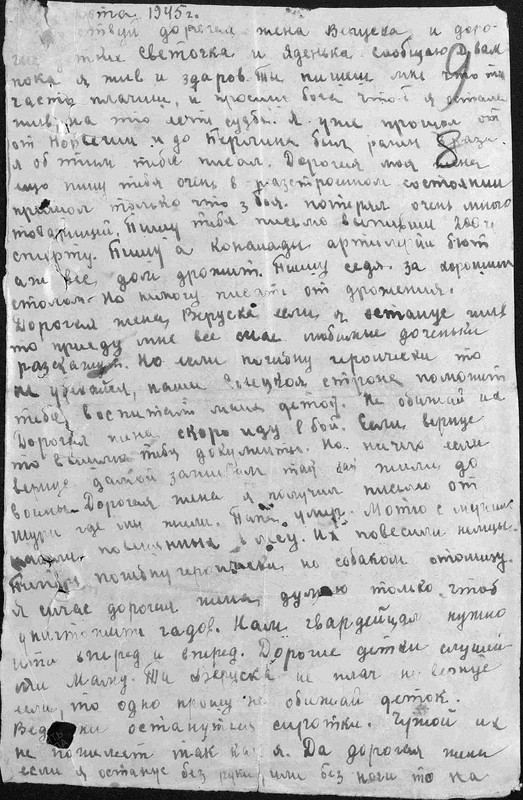 рта 1945 г.
ствуй дорогая жена Веруска и доро-
гие детки Светочка и Яденька сообщаю вам
пока я жив и здаров. Ти пишеш мне что ти
часто плачиш, и просиш бога что-б я остался
жив, на то есть судьба. Я уже прошол от
от Норвегии и до Берлина был ранен 8 раз.
я об этим тибе писал. Дорогая моя жена
ещо пишу тибя очень в разстроином состоянии
пришол только что з боя. потерял очень много
товарищей. Пишу тибя письмо выпивши 200 гр
спирту. Пишу а кономади артилерйи бют
аже все доли дрожит. Пишу седя за хорошим
столом- но нимогу писать от дрожения.
Дорогая жена, Веруска если я останус жив
то приеду мне все мае любимые доченьки
разскажут. Но если погибну героически то
не убевайся, наша Совецкая старона поможит
тибя воспитат маих деток. Не обижай их
Дорогая жена скоро иду в бой. Если вернус
то вишлю тибя документы. Но ничего если
вернус дамой заживем так как жили до
войны. Дорогая жена я получил писмо от
Шури где ми жили. Папа умир. Мотю с внучик
нашли повешиных в лесу. Их повесили немцы.
Типерь погибну героически, но собакам отомщу.
Я сичас дорогая жина, думаю только, чтоб
уничтожит гадов. Нам гвардейцам нужно
итти вперед и вперед. Дорогие детки слушай
ти Маму. Ти Веруска не плач не вернус
если, то одно прошу не обижай деток.
Ведь они останутся сиротки. Чужой их
не пожилеет так как я. Да дорогая жена
если я останус без руки, или без ноги то на
9